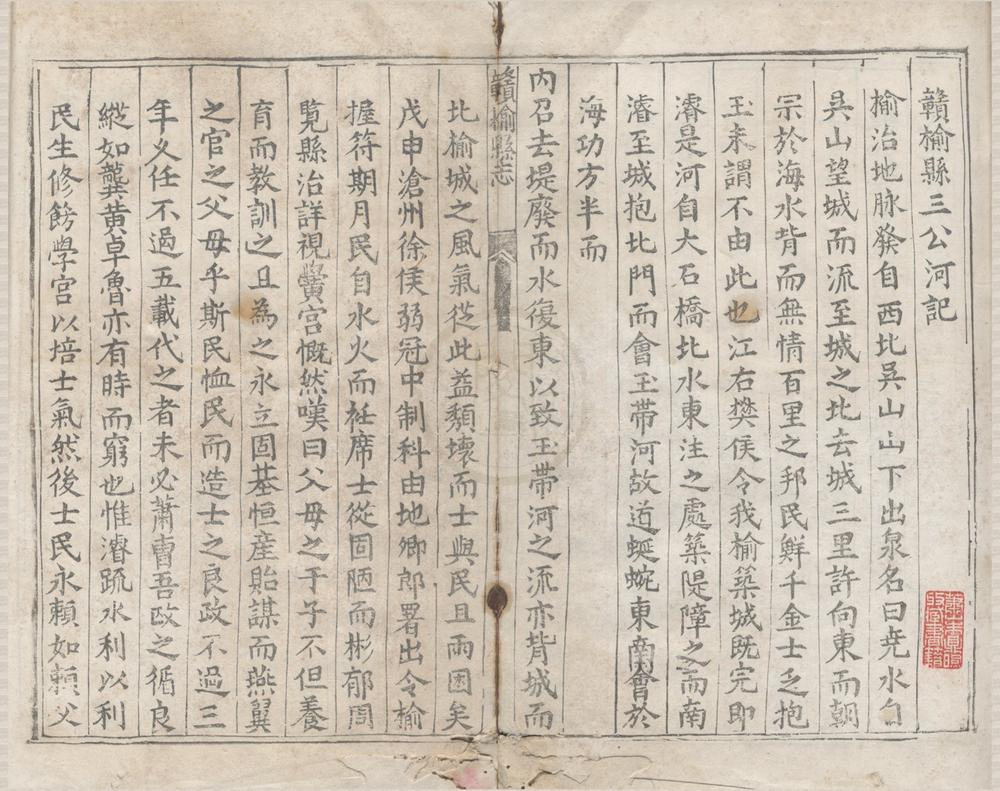 贛榆縣三公河記
榆治地脉發自西北吳山山下出泉名曰尭水自
吳山望城而流至城之北去城三里許向東而朝
宗於海水背而無情百里之邦民鮮千金士乏抱
玉未謂不由此也江右樊侯令我榆築城既完即
濬是河自大石橋北水東注之處築隄障之而南
濬至城抱北門而會玉帶河故道蜒蜿東南會於
海功方半而
內召去堤廢而水復東以致玉帶河之流亦背城而
贛榆縣志
北榆城之風氣從此益頹壞而士與民且兩困矣
戊申滄州徐侯弱冠中制科由地卿郎署出令榆
握符期月民自水火而袵席士從固陋而彬郁周
覽縣治詳視黌宮慨然嘆曰父母之于子不但養
育而教訓之且為之永立固基恒産貽謀而燕翼
之官之父母乎斯民恤民而造士之良政不過三
年乂任不過五載代之者未必蕭曹吾政之循良
縱如龔黃卓魯亦有時而窮也惟濬疏水利以利
民生修餝學宮以培士氣然後士民永賴如賴父